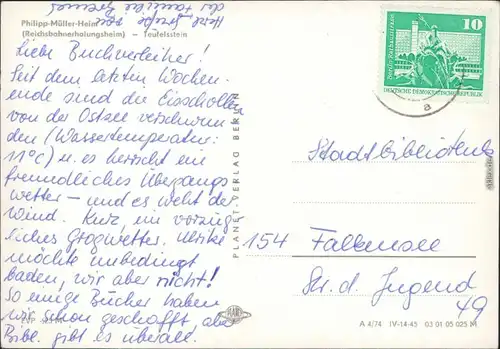 Philipp-Müller-Heim
(Reichsbahnerholungsheim) — Teufelsstein
Herzl. Grüße von
der Familie
Liebe Buchverleiher!
Seit dem letzten Wochen-
ende sind die Eisschollen
von der Ostsee verschwun
den (Wassertemperatur:
11°C) u. es herrscht ein
freundliches Übergangs
wetter – und es weht der
Wind. Kurz, ein vorzüg
liches Grogwetter. Ulrike
möchte unbedingt
baden, wir aber nicht!
So einige Bücher haben
wir schon geschafft, aber
Bibl. gibt es überall.
PLANET-VERLAG BERLIN
PLANET
10
Berlin-Rathausstrasse
DEUTSCHE DEMOKRATISCHE REPUBLIK
a
Stadtbibliothek
154 Falkensee
Str. d. Jugend
49
A 4/74 IV-14-45 03 01 05 025 M